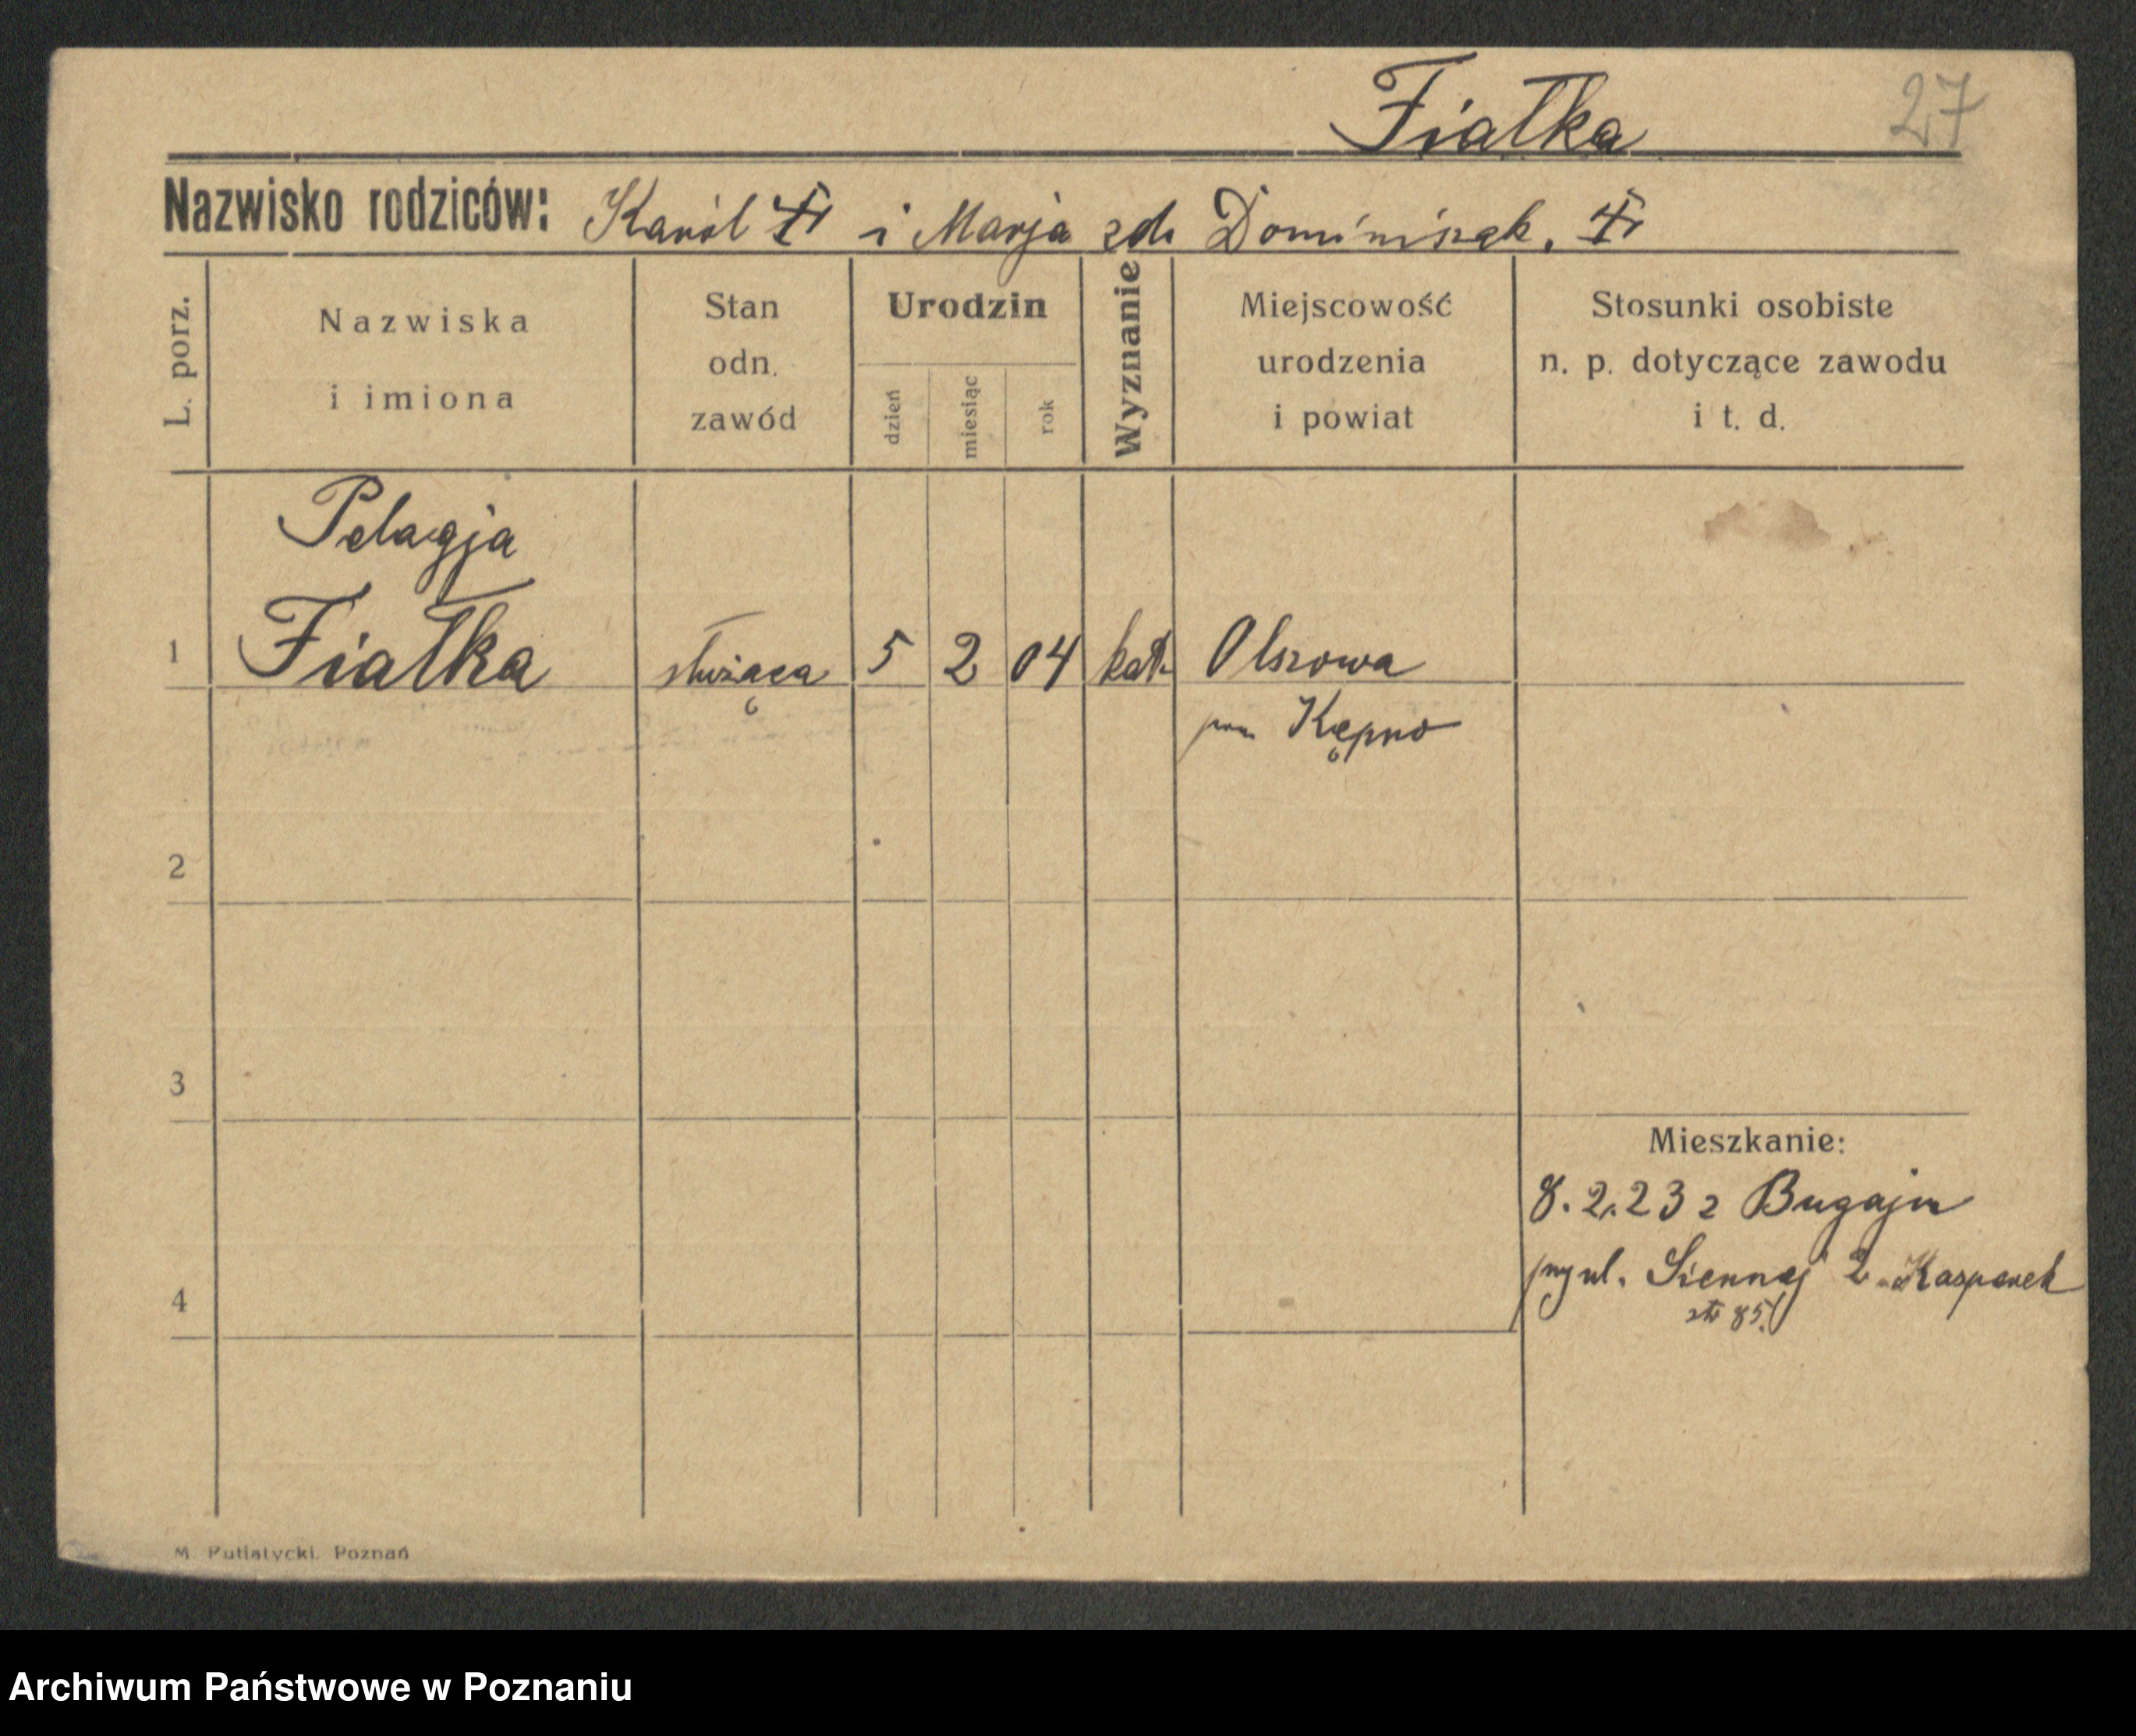 Fiałka
27
Nazwisko rodziców: Karól i Marja zd. Dominiszak.
L. porz.
Nazwiska
i imiona
Stan
odn.
zawód
Urodzin
dzień
miesiąc
rok
Wyznanie
Miejscowość
urodzenia
i powiat
Stosunki osobiste
n. p. dotyczące zawodu
i t. d.
Pelagja
1 Fiałka służąca 5 2 04 kat. Olszowa
pow Kępno
2
3
Mieszkanie:
8.2.23 z Bugaju
przy ul. Siennej 2 Kasparek
4
str 85
M. Putiatycki. Poznań
Archiwum Państwowe w Poznaniu